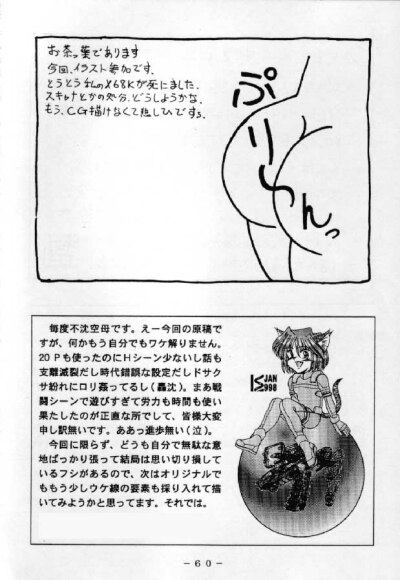 お茶っ葉であります
今回、イラスト参加です.
とうとう私のX68Kが死にました.
スキャナとかの処分、どうしようかな.
もう、CG描けなくて悲しひです。
ぷりーんっ
毎度不沈空母です。えー今回の原稿で
すが、何かもう自分でもワケ解りません。
20Pも使ったのにHシーン少ないし話も
支離滅裂だし時代錯誤な設定だしドサク
サ紛れにロリ姦ってるし(轟沈)。まあ戦
闘シーンで遊びすぎて労力も時間も使い
果たしたのが正直な所でして、皆様大変
申し訳無いです。ああっ進歩無い(泣)。
今回に限らず、どうも自分で無駄な意
地ばっかり張って結局は思い切り損してい
るフシがあるので、次はオリジナルで
ももう少しウケ線の要素も採り入れて描
いてみようかと思ってます。それでは。
JAN
1998
-60-